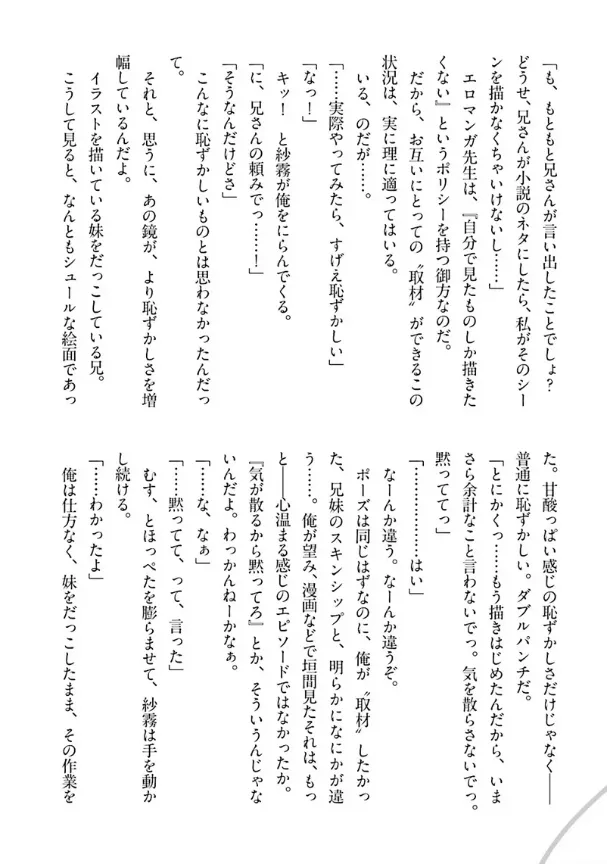 「も、もともと兄さんが言い出したことでしょ?
どうせ、兄さんが小説のネタにしたら、私がそのシー
ンを描かなくちゃいけないし……」
エロマンガ先生は、『自分で見たものしか描きた
くない』というポリシーを持つ御方なのだ。
だから、お互いにとっての〝取材〟ができるこの
状況は、実に理に適ってはいる。
いる、のだが……。
「……実際やってみたら、すげえ恥ずかしい」
「なっ!」
キッ! と紗霧が俺をにらんでくる。
「に、兄さんの頼みでっ……!」
「そうなんだけどさ」
こんなに恥ずかしいものとは思わなかったんだっ
て。
それと、思うに、あの鏡が、より恥ずかしさを増
幅しているんだよ。
イラストを描いている妹をだっこしている兄。
こうして見ると、なんともシュールな絵面であっ
た。甘酸っぱい感じの恥ずかしさだけじゃなく――
普通に恥ずかしい。ダブルパンチだ。
「とにかくっ……もう描きはじめたんだから、いま
さら余計なこと言わないでっ。気を散らさないでっ。
黙っててっ」
「………………はい」
なーんか違う。なーんか違うぞ。
ポーズは同じはずなのに、俺が〝取材〟したかっ
た、兄妹のスキンシップと、明らかになにかが違
う……。俺が望み、漫画などで垣間見たそれは、もっ
と――心温まる感じのエピソードではなかったか。
『気が散るから黙ってろ』とか、そういうんじゃな
いんだよ。わっかんねーかなぁ。
「……な、なぁ」
「……黙ってて、って、言った」
むす、とほっぺたを膨らませて、紗霧は手を動か
し続ける。
「……わかったよ」
俺は仕方なく、妹をだっこしたまま、その作業を